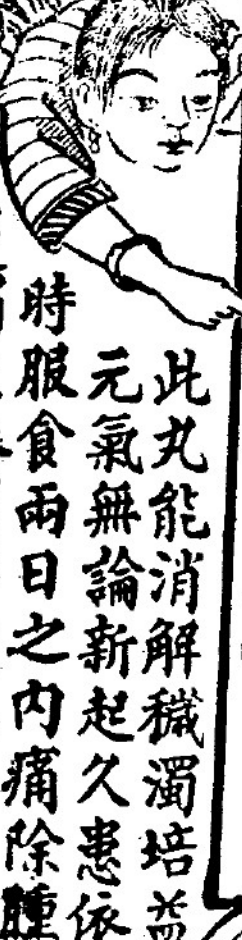 此丸能消解穢濁培益
元氣無論新起久患依
時服食兩日之內痛除腫